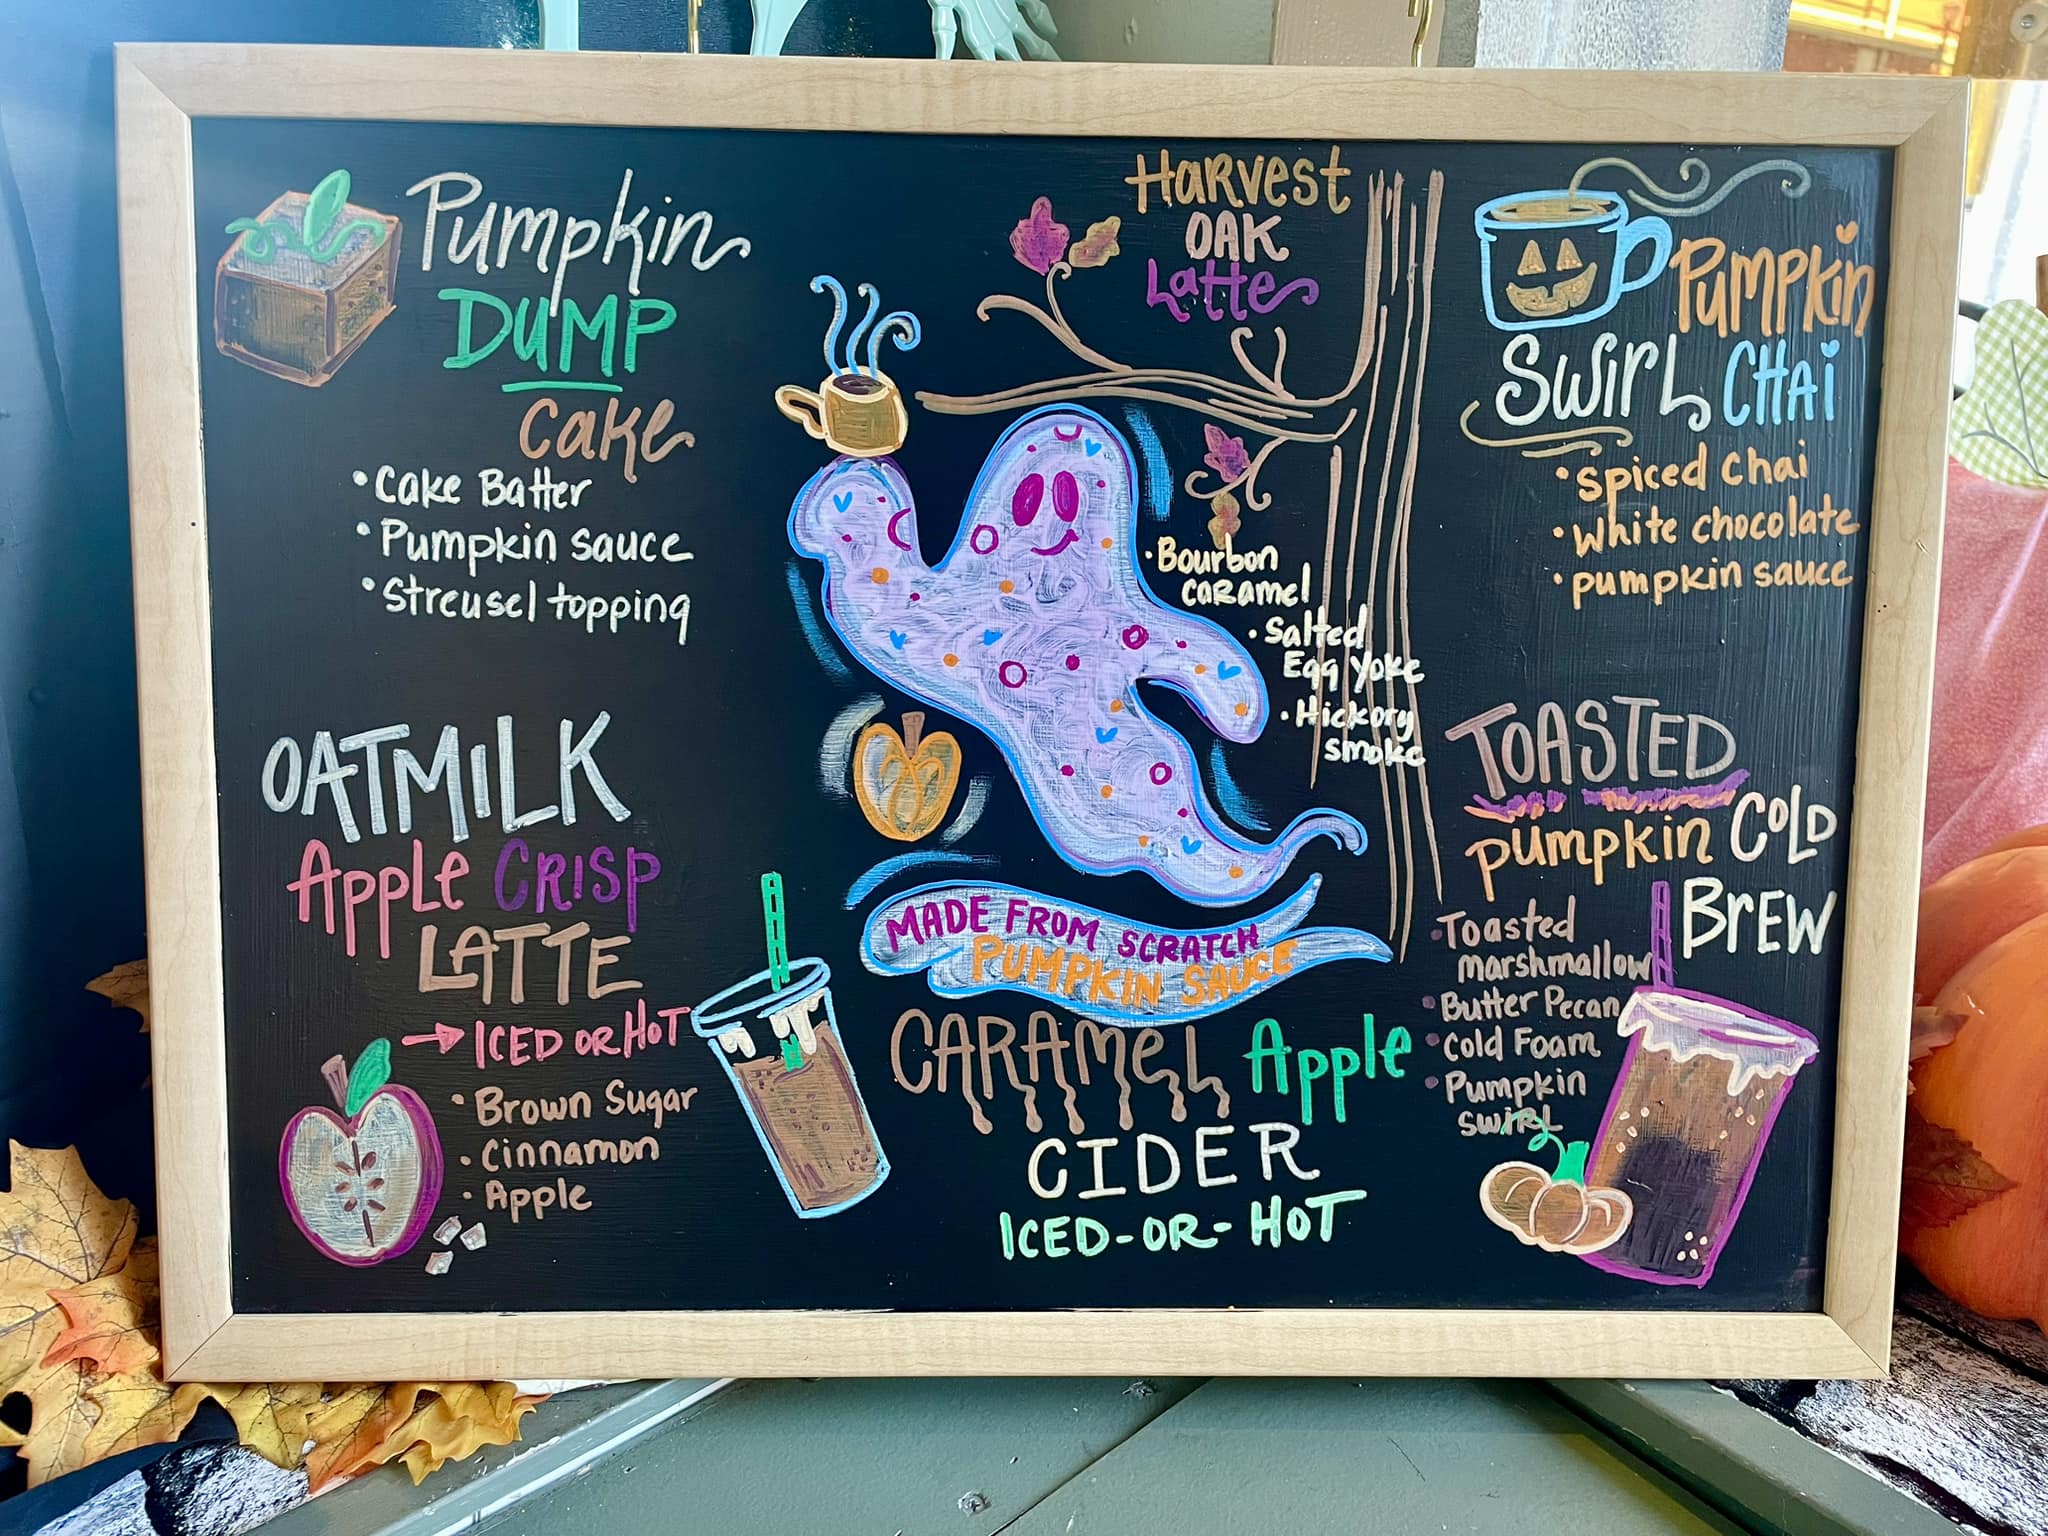 Pumpkin
DUMP
Cake
• Cake Batter
• Pumpkin sauce
• Streusel topping
HARVEST
OAK
Latte
• Bourbon
CARAMEL
• Salted
Egg Yoke
• Hickory
smoke
PUMPKIN
SWIRL CHAI
• spiced chai
• white chocolate
• pumpkin sauce
OATMILK
Apple CRISP
LATTE
→ ICED OR HOT
• Brown Sugar
• Cinnamon
• Apple
MADE FROM SCRATCH
PUMPKIN SAUCE
CARAMEL Apple
CIDER
ICED-OR-HOT
TOASTED
pumpkin COLD
BREW
• Toasted
marshmallow
• Butter Pecan
• Cold Foam
• Pumpkin
swirl